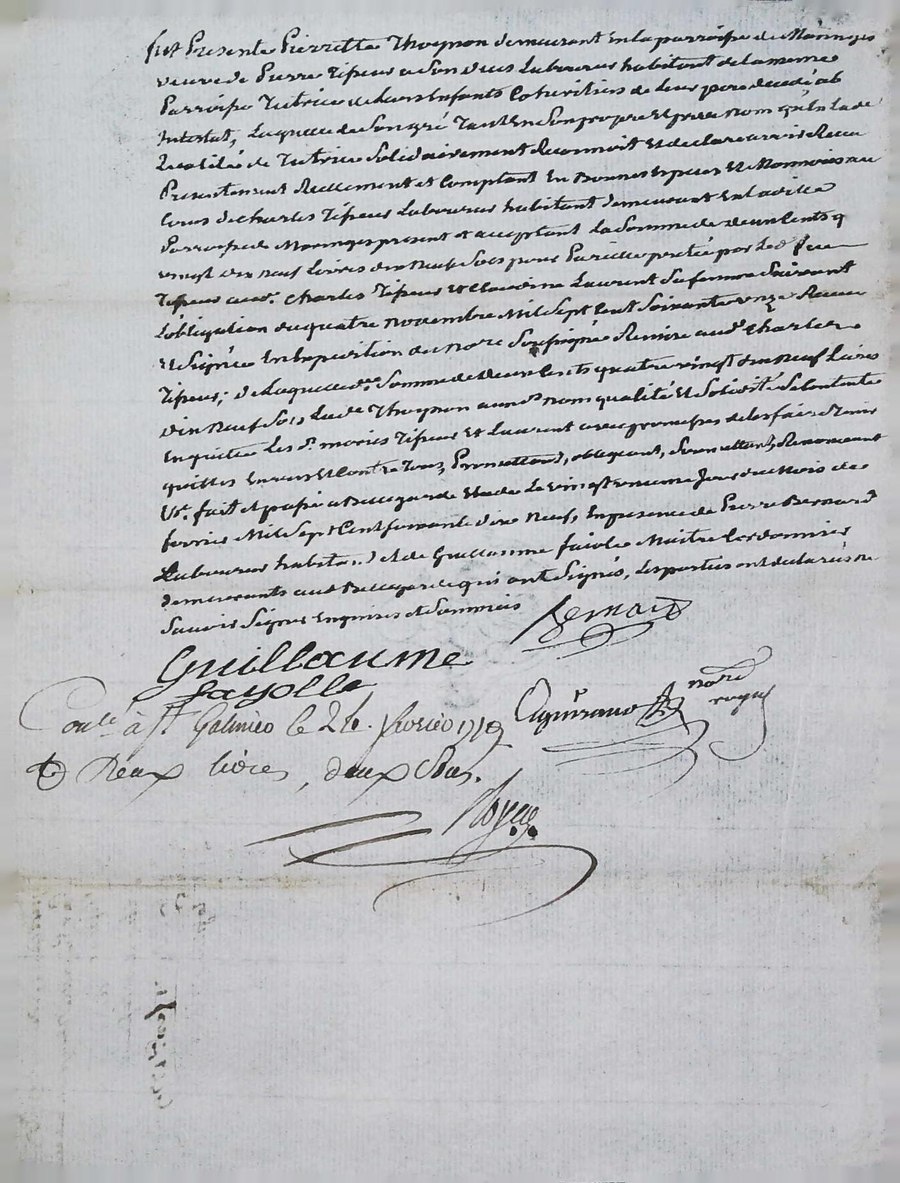 fut Presente Pierrette Thoynon demeurant En la parroisse de Maringes
veuve de Pierre Tisseur a Son vivant Laboureur habitant de la meme
Parroisse Tutrice de leurs Enfants Cohéritiers de leur pere decedé ab
intestat, Laquelle de Son gré Tant En Son propre et privé nom qu'En la de
qualité de Tutrice Solidairement Reconnoit Et declare avoir Recu
Presentement Reellement et Comptant En Bonnes Especes Et Monnoie au
Cours de Charles Tisseur Laboureur habitant demeurant En la dite
Parroisse de Maringes present et acceptant la Somme de deux Cents q
vingt dix neuf Livres dix Neuf Sols pour Pareille portée par Le d. feu
Tisseur aud. Charles Tisseur Et Claudine Laurent Sa femme Suivant
L'obligation du quatre Novembre Mil Sept Cent Soixante onze Recue
Et Signée En Expedition du Nore Soussigné Remise aud. Charles
Tisseur; de Laquelle de. Somme de deux Cents quatre vingt dix Neuf Livres
dix Neuf Sols, La de. Thoynon aux ds. nom qualité Et Solidité Se Contente
En quitte Les d. mariés Tisseur Et Laurent avec promesses de les faire Tenir
quittes Envers Et Contre Tous, Promettant, obligeant, Soumettant, Renoncant
fait et passé a Bellegarde Etude Le vingt Jour du Mois de
fevrier Mil Sept Cent Soixante dix Neuf, En presence de Pierre Bernard
Laboureur habitant Et de Guillaume faiolle Maitre Cordonnier
demeurants aud. Bellegarde qui ont Signés, Les parties ont declaré ne
Savoir Signer Enquises et Sommées
Bernard
Guillaume
fayolle
Conle. à St. Galmier le 24. fevrier 1779
nore
royal
R Deux livres, deux Sols.